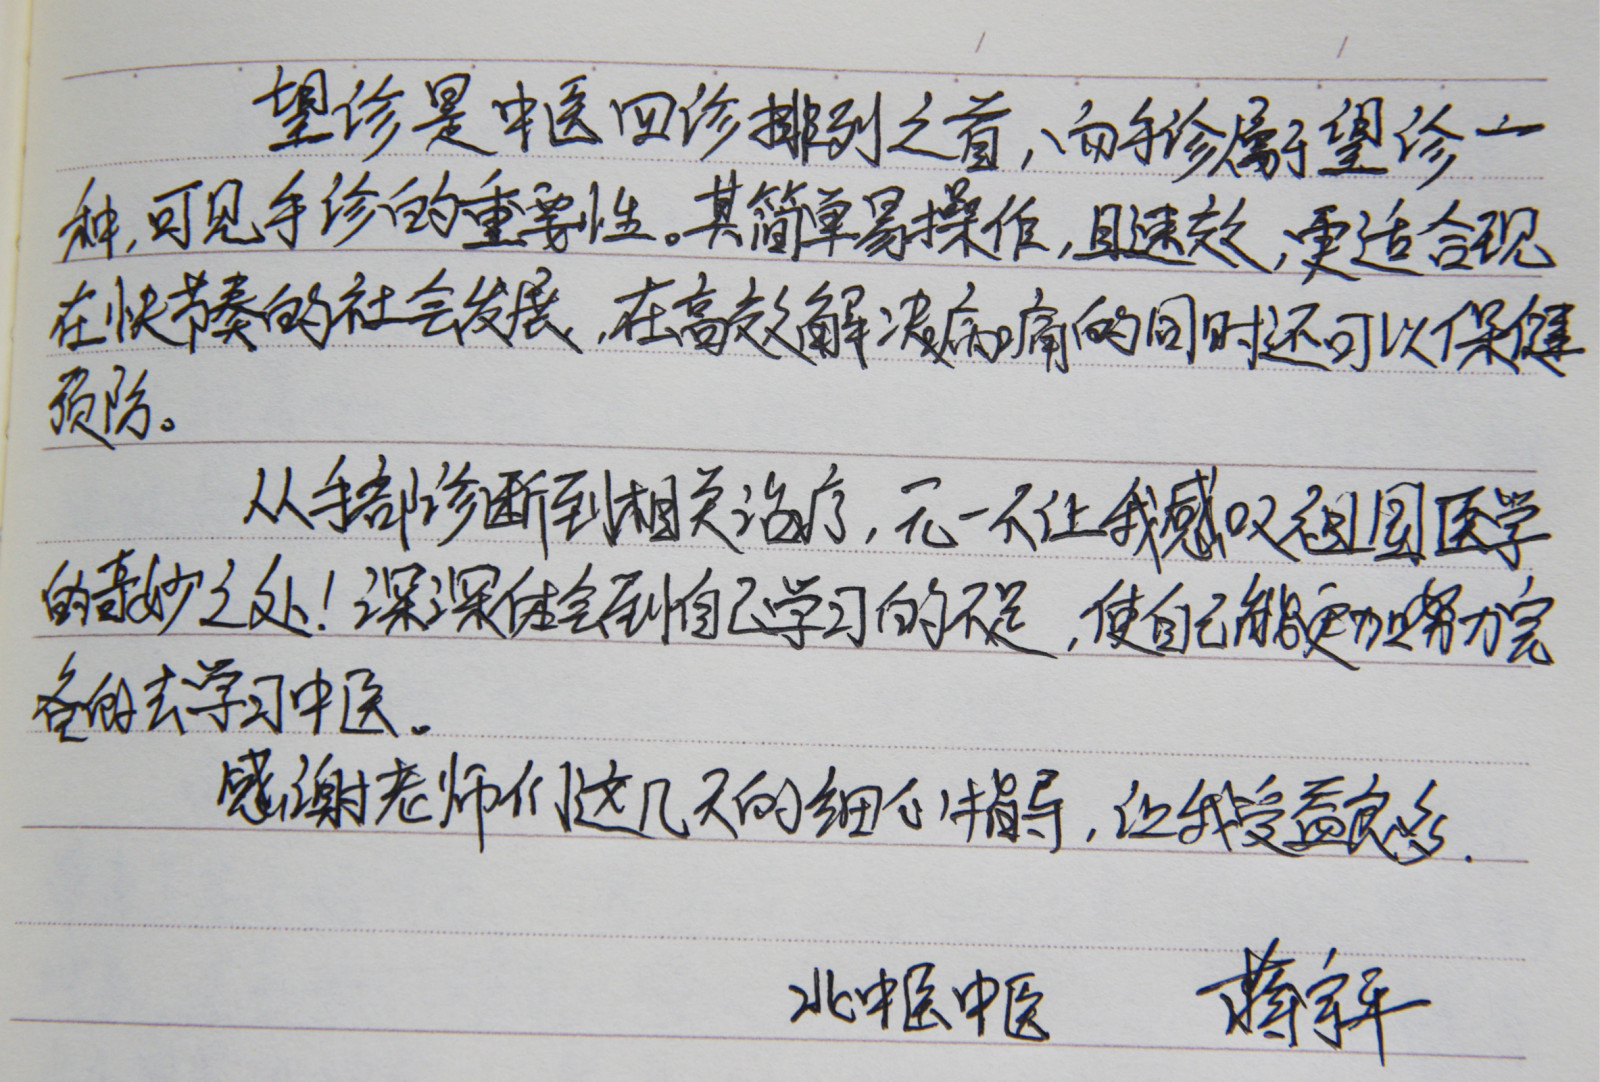 望诊是中医四诊排列之首,而手诊属于望诊一
种,可见手诊的重要性。其简单易操作,且速效,更适合现
在快节奏的社会发展,在高效解决病痛的同时还可以保健
预防。
从手部诊断到相关治疗,无一不让我感叹祖国医学
的奇妙之处!深深体会到自己学习的不足,使自己能更加努力完
备的去学习中医。
感谢老师们这几天的细心指导,让我受益良多.
北中医中医 蒋宗军